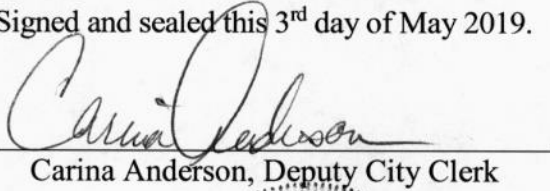 Signed and sealed this 3rd day of May 2019.
Carina Anderson
Carina Anderson, Deputy City Clerk